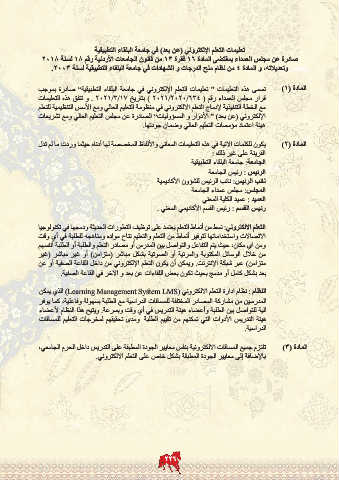 تعليمات التعلم الإلكتروني (عن بعد) في جامعة البلقاء التطبيقية
صادرة عن مجلس العمداء بمقتضى المادة ١٦ فقرة ١٣ من قانون الجامعات الأردنية رقم ١٨ لسنة ٢٠١٨
وتعديلاته، و المادة ٤ من نظام منح الدرجات و الشهادات في جامعة البلقاء التطبيقية لسنة ٢٠٠٣.
المادة (١) تسمى هذه التعليمات " تعليمات التعلم الإلكتروني في جامعة البلقاء التطبيقية" صادرة بموجب
قرار مجلس العمداء رقم (٢٠٢١/٢٠٢٠/٦٣٤) بتاريخ ٢٠٢١/٣/١٧ . و تتفق هذه التعليمات
مع الخطة التنفيذية لإدماج التعلم الإلكتروني في منظومة التعليم العالي ومع الأسس التنظيمية للتعلم
الإلكتروني (عن بعد) " الأدوار و المسؤوليات" الصادرة عن مجلس التعليم العالي ومع تشريعات
هيئة اعتماد مؤسسات التعليم العالي وضمان جودتها.
المادة (٢) يكون للكلمات الآتية في هذه التعليمات المعاني والألفاظ المخصصة لها أدناه حيثما وردت ما لم تدل
القرينة على غير ذلك :
الجامعة: جامعة البلقاء التطبيقية
الرئيس : رئيس الجامعة
نائب الرئيس: نائب الرئيس للشؤون الأكاديمية
المجلس: مجلس عمداء الجامعة
العميد : عميد الكلية المعني
رئيس القسم : رئيس القسم الأكاديمي المعني .
التعلم الإلكتروني: نمط من أنماط التعلم يعتمد على توظيف التطورات الحديثة ودمجها في تكنولوجيا
الاتصالات واستخداماتها لتوفير أنماط من التعلم والتعليم تتاح مواده ومناهجه للطلبة في أي وقت
ومن أي مكان، حيث يتم التفاعل والتواصل بين المدرس أو مصادر التعلم والطلبة أو الطلبة أنفسهم
من خلال الوسائل المكتوبة والمرئية أو الصوتية بشكل مباشر (متزامن) أو غير مباشر (غير
متزامن) عبر شبكة الإنترنت. ويمكن أن يكون التعلم الإلكتروني من داخل القاعة الصفية أو عن
بعد بشكل كامل أو مدمج بحيث تكون بعض اللقاءات عن بعد و الآخر في القاعة الصفية.
النظام : نظام ادارة التعلم الالكتروني (Learning Management System LMS) الذي يمكن
المدرسين من مشاركة المصادر المختلفة للمساقات الدراسية مع الطلبة بسهولة وفاعلية، كما يوفر
آلية للتواصل بين الطلبة وأعضاء هيئة التدريس في أي وقت وبسرعة. ويتيح هذا النظام لأعضاء
هيئة التدريس الأدوات التي تمكنهم من تقييم الطلبة ومدى تحقيقهم لمخرجات التعلم للمساقات
الدراسية.
المادة (٣) تلتزم جميع المساقات الالكترونية بنفس معايير الجودة المطبقة على التدريس داخل الحرم الجامعي،
بالإضافة إلى معايير الجودة المطبقة بشكل خاص على التعلم الالكتروني.